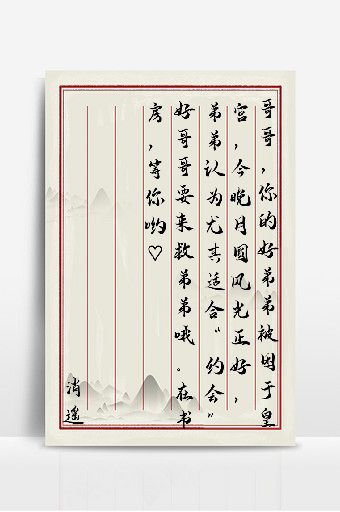 哥哥，你的好弟弟被困于皇
宫，今晚月圆风光正好，
弟弟认为尤其适合“约会”
好哥哥要来救弟弟哦。在书
房，等你哟♡
消遥